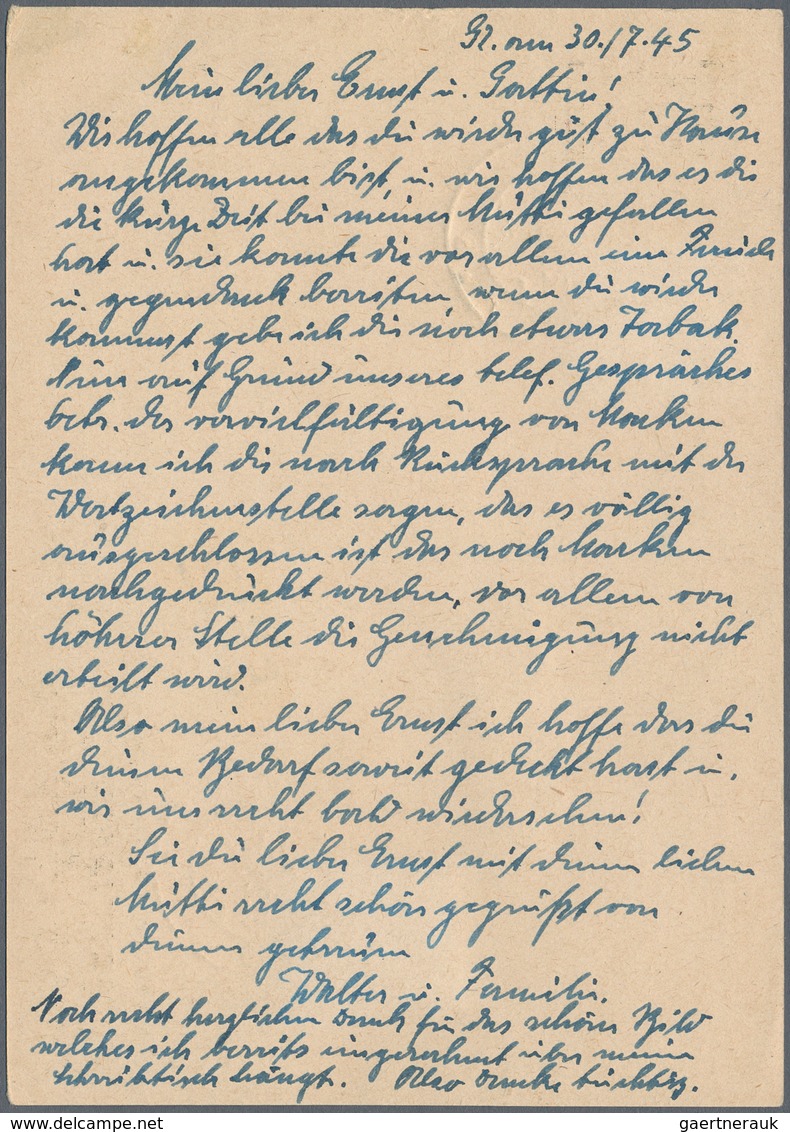 Gl. am 30./7.45
Mein lieber Ernst u. Gattin!
Wir hoffen alle das du wieder gut zu Hause
angekommen bist, u. wir hoffen das es dir
die kurze Zeit bei meiner Mutti gefallen
hat u. sie konnte dir vor allem eine Freude
u. gegendruck bereiten, wenn du wieder
kommst gebe ich dir noch etwas Tabak.
Nun auf Grund unseres telef. Gespräches
betr. der vervielfältigung von Marken
kann ich dir nach Rücksprache mit der
Wertzeichenstelle sagen, das es völlig
ausgeschlossen ist das noch Marken
nachgedruckt werden, vor allem von
höherer Stelle die Genehmigung nicht
erteilt wird.
Also mein lieber Ernst ich hoffe das du
deinen Bedarf soweit gedeckt hast u.
wir uns recht bald wiedersehen!
Sei du lieber Ernst mit deiner lieben
Mutti recht schön gegrüßt von
deinem getreuen
Walter u. Familie.
Noch recht herzlichen Dank für das schöne Bild
welches ich bereits eingerahmt über meinem
Schreibtisch hängt. Also Danke
gaertnerauk